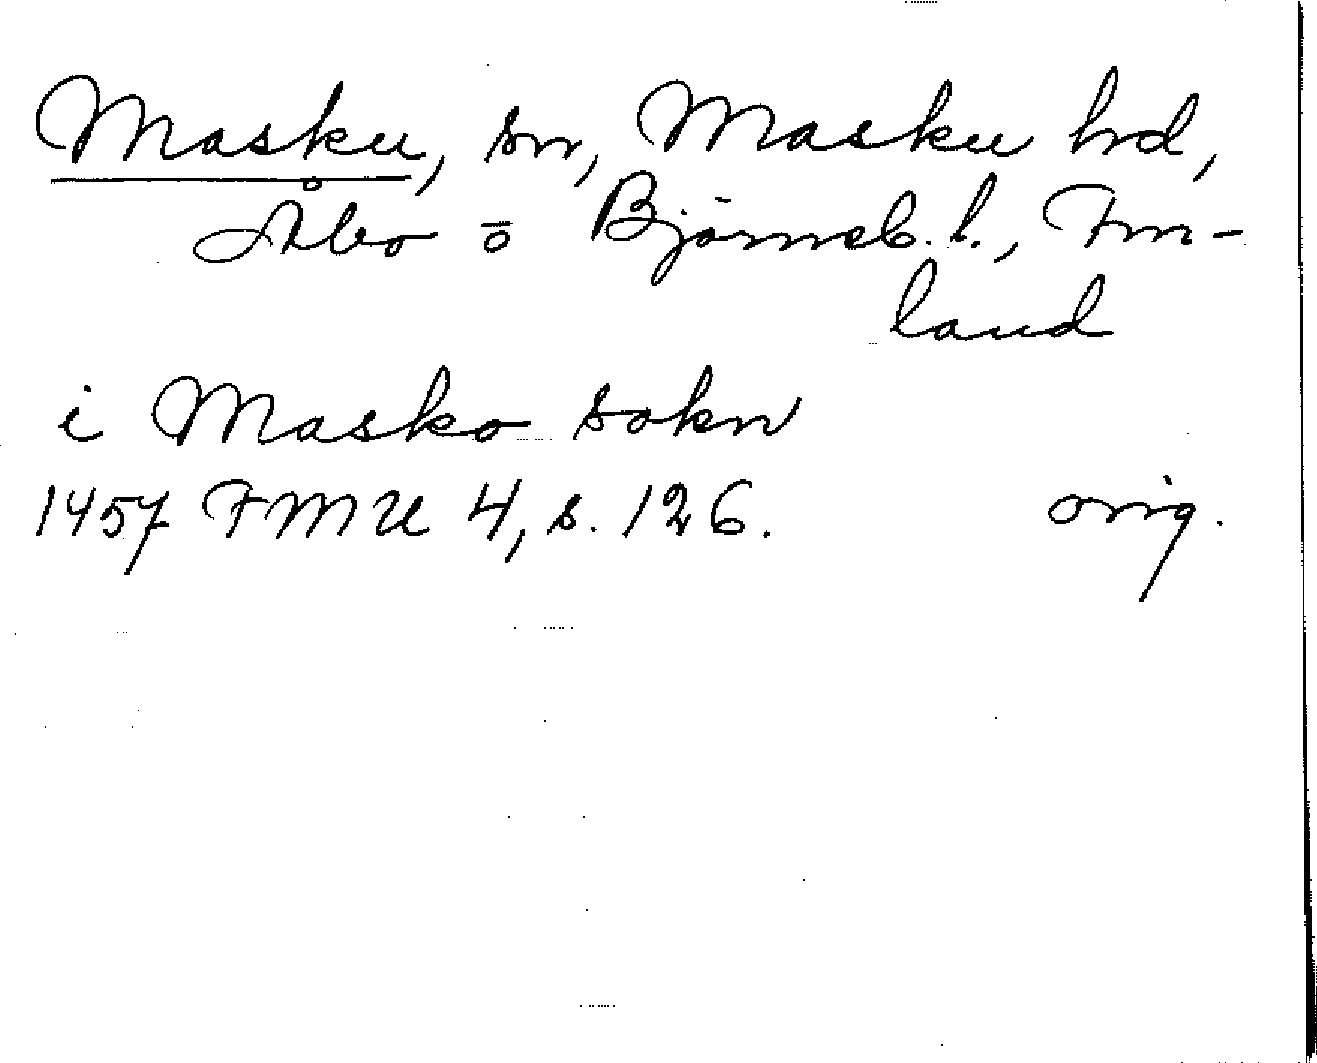 Masku, sn, Masku hd,
Åbo o Björneb. l., Fin-
land
i Masko sokn
1457 FMU 4, s. 126. orig.